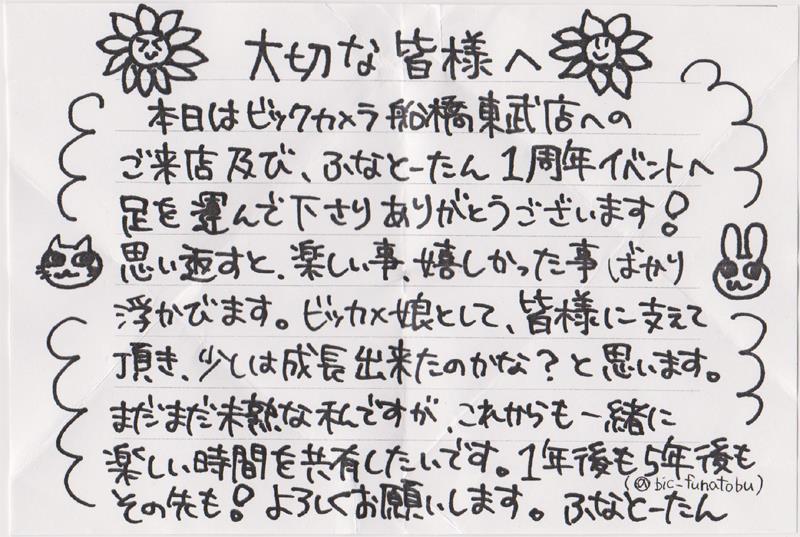 大切な皆様へ
本日はビックカメラ船橋東武店への
ご来店及び、ふなとーたん1周年イベントへ
足を運んで下さりありがとうございます!
思い返すと、楽しい事、嬉しかった事ばかり
浮かびます。ビッカメ娘として、皆様に支えて
頂き、少しは成長出来たのかな?と思います。
まだまだ未熟な私ですが、これからも一緒に
楽しい時間を共有したいです。1年後も5年後も
その先も!よろしくお願いします。ふなとーたん
(@bic-funatobu)